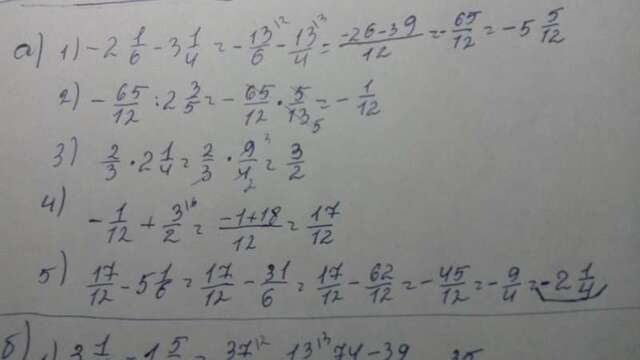 а) 1) -2 1/6 - 3 1/4 = - 13/6 - 13/4 = -26-39/12 = - 65/12 = -5 5/12
2) - 65/12 : 2 3/5 = - 65/12 · 5/13 = - 1/12
3) 2/3 · 2 1/4 = 2/3 · 9/4 = 3/2
4) - 1/12 + 3/2 = -1+18/12 = 17/12
5) 17/12 - 5 1/6 = 17/12 - 31/6 = 17/12 - 62/12 = - 45/12 = - 9/4 = -2 1/4
б)